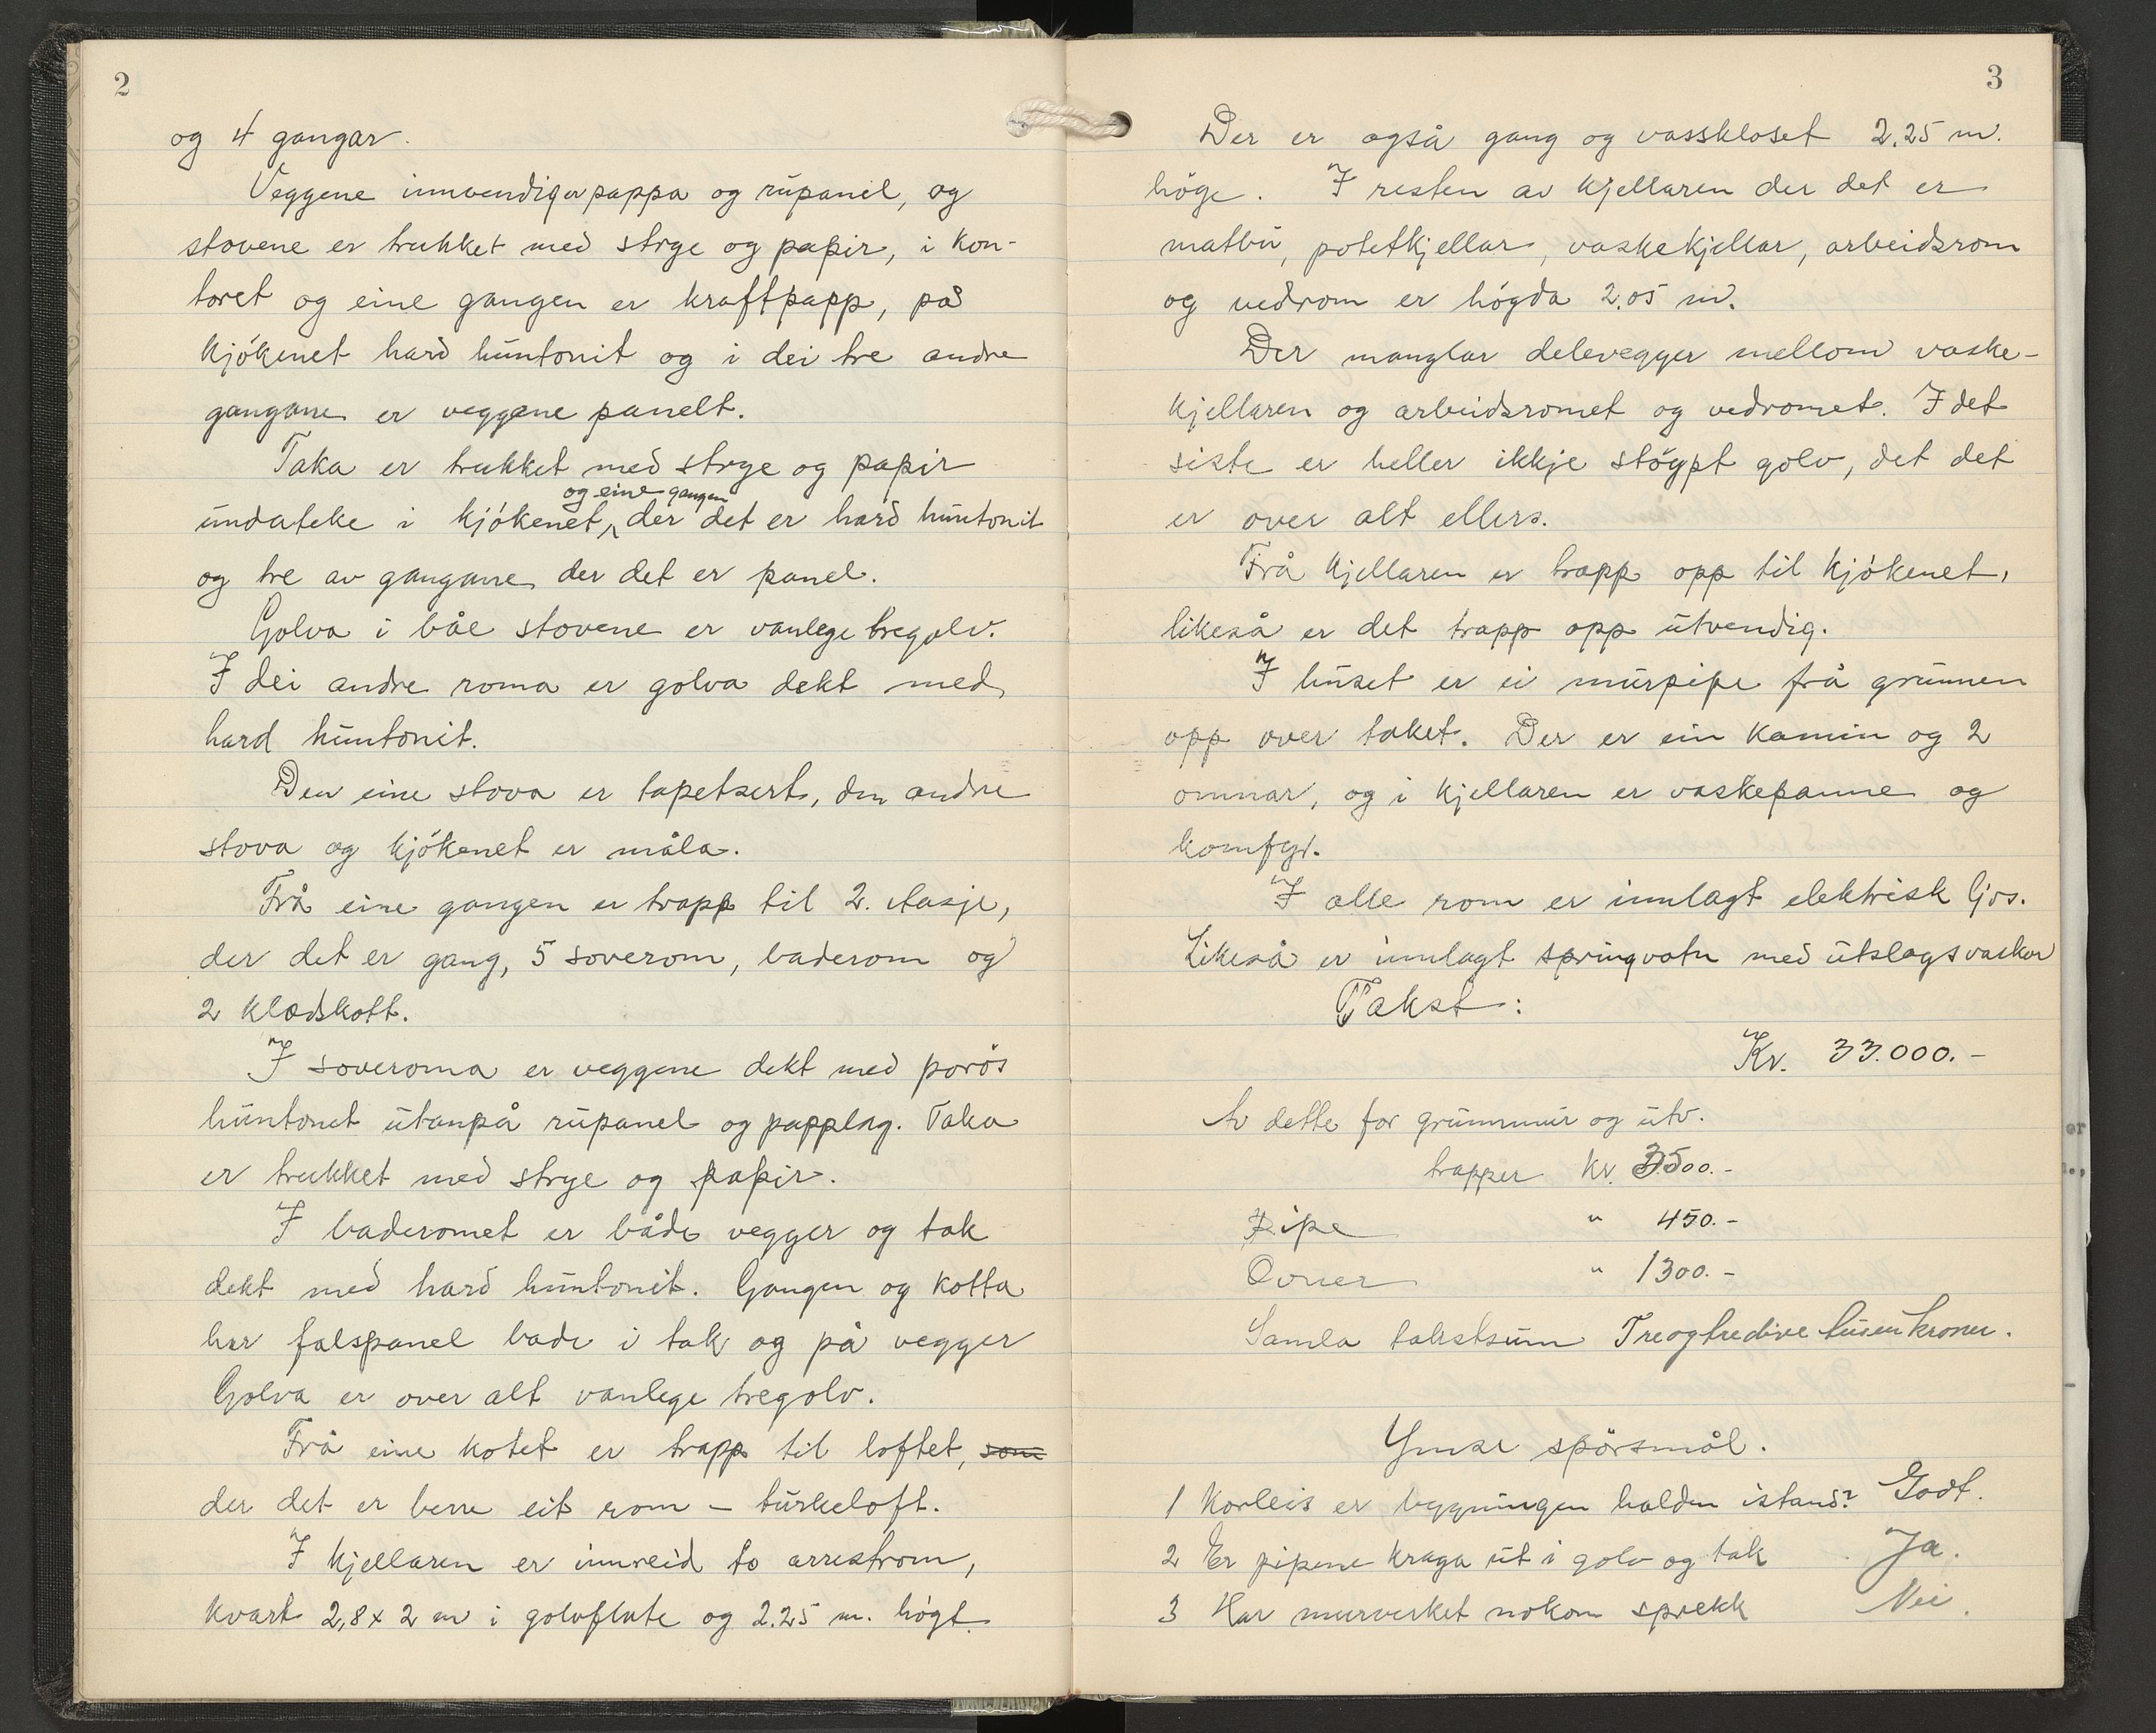 2
og 4 gangar.
Veggene innvendig er pappa og rupanel, og
stovene er trukket med strye og papir, i kon-
toret og eine gangen er kraftpapp, på
kjökenet hard huntonit og i dei tre andre
gangane er veggene panelt.
Taka er trukket med strye og papir
og eine gangen
undateke i kjökenet, der det er hard huntonit
og tre av gangane der det er panel.
Golva i båe stovene er vanlege tregolv.
I dei andre roma er golva dekt med
hard huntonit.
Den eine stova er tapetsert, den andre
stova og kjökenet er måla.
Frå eine gangen er trapp til 2. etasje,
der det er gang, 5 soverom, baderom og
2 klædskott.
I soveroma er veggene dekt med porös
huntonit utanpå rupanel og papplag. Taka
er trukket med strye og papir.
I baderomet er både vegger og tak
dekt med hard huntonit. Gangen og kotta
har falspanel bade i tak og på vegger
Golva er over alt vanlege tregolv.
Frå eine kotet er trapp til loftet, som
der det er berre eit rom – turkeloft.
I kjellaren er innreid to arrestrom,
kvart 2,8 x 2 m i golvflate og 2.25 m. högt.
3
Der er også gang og vasskloset 2.25 m.
höge. I resten av kjellaren der det er
matbu, potetkjellar, vaskekjellar, arbeidsrom
og vedrom er högda 2.05 m.
Der manglar delevegger mellom vaske-
kjellaren og arbeidsromet og vedromet. I det
siste er heller ikkje stöypt golv, det det
er over alt ellers.
Frå kjellaren er trapp opp til kjökenet,
likeså er det trapp opp utvendig.
I huset er ei murpipe frå grunnen
opp over taket. Der er ein kamin og 2
omnar, og i kjellaren er vaskepanne og
komfyr.
I alle rom er innlagt elektrisk ljos.
Likeså er innlagt springvatn med utslagsvasker
Takst:
Kr. 33.000.-
Av dette for grunnmur og utv.
trapper kr. 3500.-
Pipe " 450.-
Ovner " 1300.-
Samla takstsum Treogtredive tusen kroner.
Ymse spörsmål.
1 Korleis er bygningen halden istand? Godt.
2 Er pipene kraga ut i golv og tak Ja.
3 Har murverket nokon sprekk Nei.
er